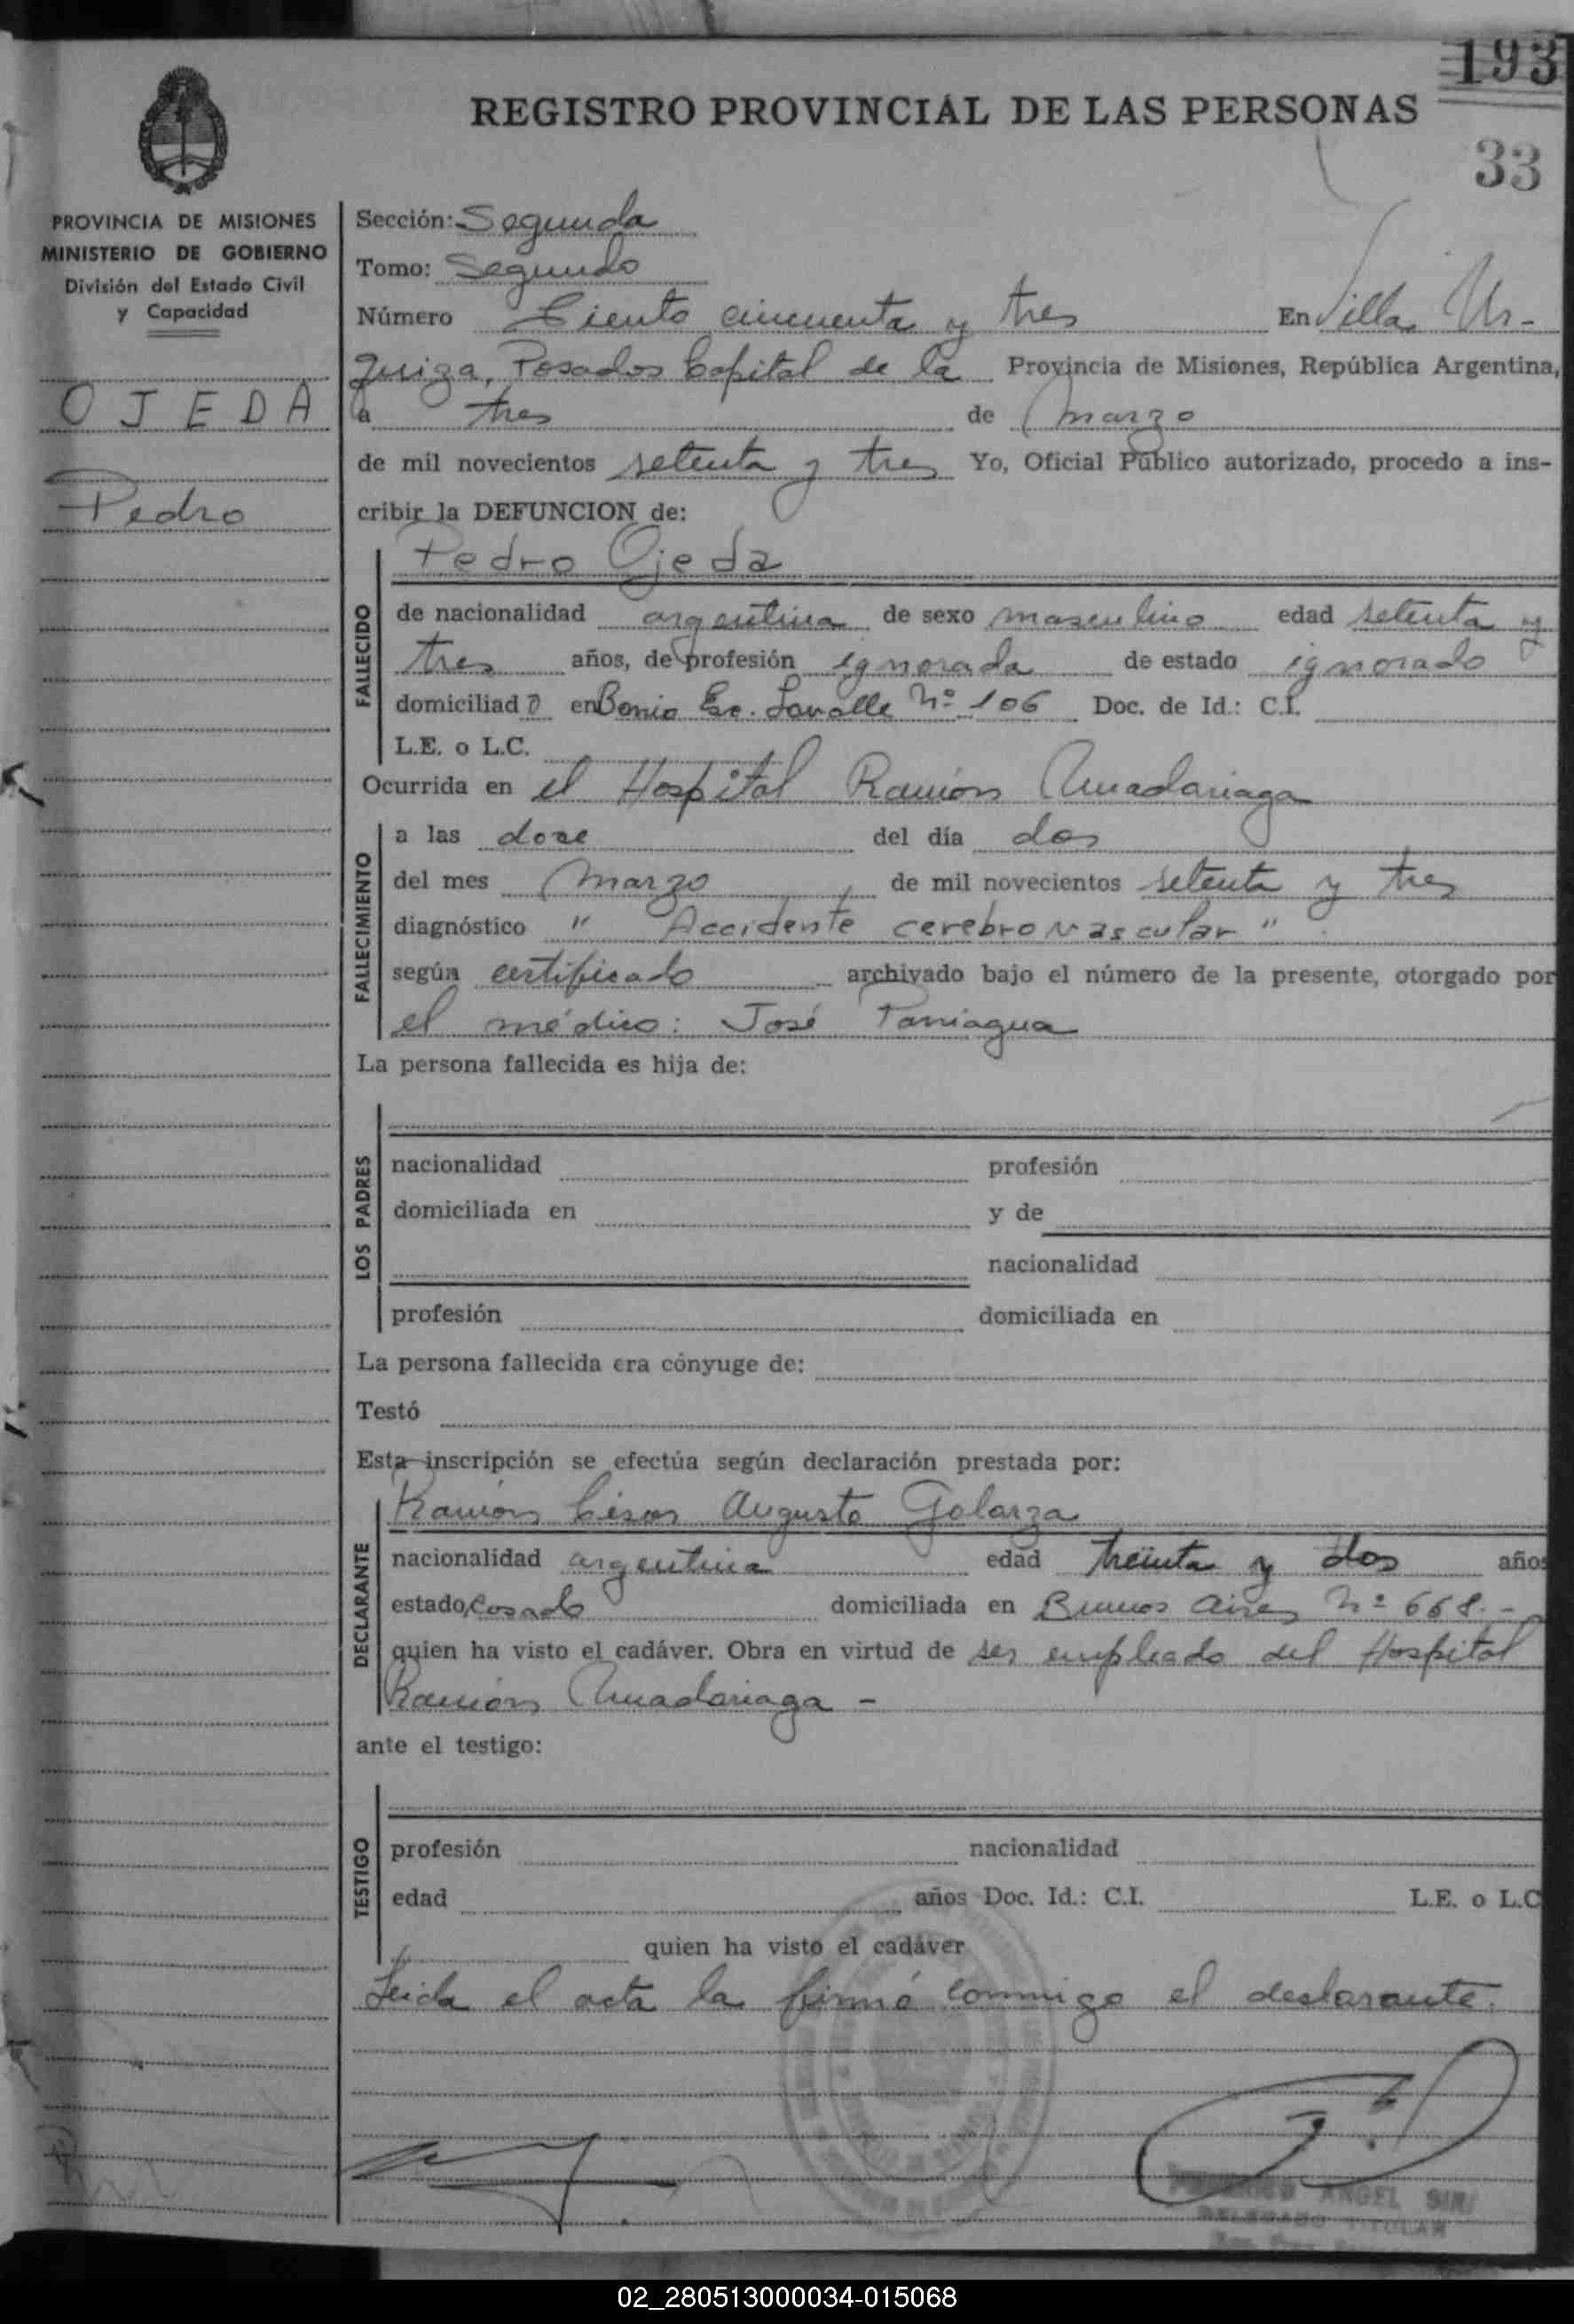 193
REGISTRO PROVINCIAL DE LAS PERSONAS
33
PROVINCIA DE MISIONES
MINISTERIO DE GOBIERNO
División del Estado Civil
y Capacidad
OJEDA
Pedro
Sección: Segunda
Tomo: Segundo
Número Ciento cincuenta y tres En Villa Ur-
quiza, Posadas Capital de la Provincia de Misiones, República Argentina,
a tres de marzo
de mil novecientos setenta y tres Yo, Oficial Público autorizado, procedo a ins-
cribir la DEFUNCION de:
Pedro Ojeda
FALLECIDO
de nacionalidad argentina de sexo masculino edad setenta y
tres años, de profesión ignorada de estado ignorado
domiciliado en Lavalle Nº 106 Doc. de Id.: C.I.
L.E. o L.C.
Ocurrida en el Hospital Ramón Madariaga
FALLECIMIENTO
a las doce del día dos
del mes marzo de mil novecientos setenta y tres
diagnóstico " Accidente cerebro vascular "
según certificado archivado bajo el número de la presente, otorgado por
el médico: José Paniagua
La persona fallecida es hija de:
LOS PADRES
nacionalidad profesión
domiciliada en y de
nacionalidad
profesión domiciliada en
La persona fallecida era cónyuge de:
Testó
Esta inscripción se efectúa según declaración prestada por:
DECLARANTE
Ramón César Augusto Galarza
nacionalidad argentina edad treinta y dos años
estado, casado domiciliada en Buenos Aires Nº 668.-
quien ha visto el cadáver. Obra en virtud de ser empleado del Hospital
Ramón Madariaga -
ante el testigo:
TESTIGO
profesión nacionalidad
edad años Doc. Id.: C.I. L.E. o L.C
quien ha visto el cadáver
Leida el acta la firmó conmigo el declarante.
ANGEL SIRI
DELEGADO TITULAR
02_280513000034-015068